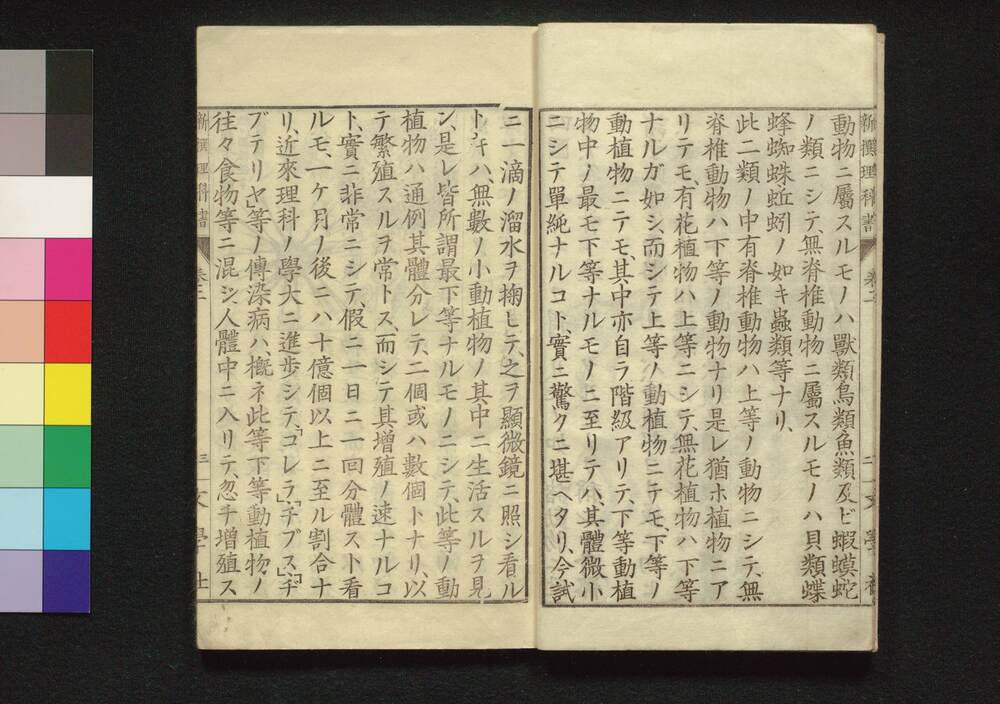 新撰理科書 卷二 二 文學社
動物ニ屬スルモノハ獸類鳥類魚類及ビ蝦蟆蛇
ノ類ニシテ、無脊椎動物ニ屬スルモノハ貝類蝶
蜂蜘蛛蚯蚓ノ如キ蟲類等ナリ、
此二類ノ中有脊椎動物ハ上等ノ動物ニシテ、無
脊椎動物ハ下等ノ動物ナリ是レ猶ホ植物ニア
リテモ、有花植物ハ上等ニシテ、無花植物ハ下等
ナルガ如シ、而シテ上等ノ動植物ニテモ、下等ノ
動植物ニテモ、其中亦自ラ階級アリテ、下等動植
物中ノ最モ下等ナルモノニ至リテハ、其體微小
ニシテ單純ナルコト、實ニ驚クニ堪ヘタリ、今試
ニ一滴ノ溜水ヲ掬シテ、之ヲ顯微鏡ニ照シ看ル
トキハ、無數ノ小動植物ノ其中ニ生活スルヲ見
ン、是レ皆所謂最下等ナルモノニシテ、此等ノ動
植物ハ通例其體分レテ、二個或ハ數個トナリ、以
テ繁殖スルヲ常トス、而シテ其增殖ノ速ナルコ
ト、實ニ非常ニシテ、假ニ一日ニ一回分體スト看
ルモ、一ケ月ノ後ニハ十億個以上ニ至ル割合ナ
リ、近來理科ノ學大ニ進歩シテ、「コレラ」、「チブス」、「ヂ
ブテリヤ」等ノ傳染病ハ、槪ネ此等下等動植物ノ
往々食物等ニ混ジ、人體中ニ入リテ、忽チ增殖ス
新撰理科書 卷二 三 文學社